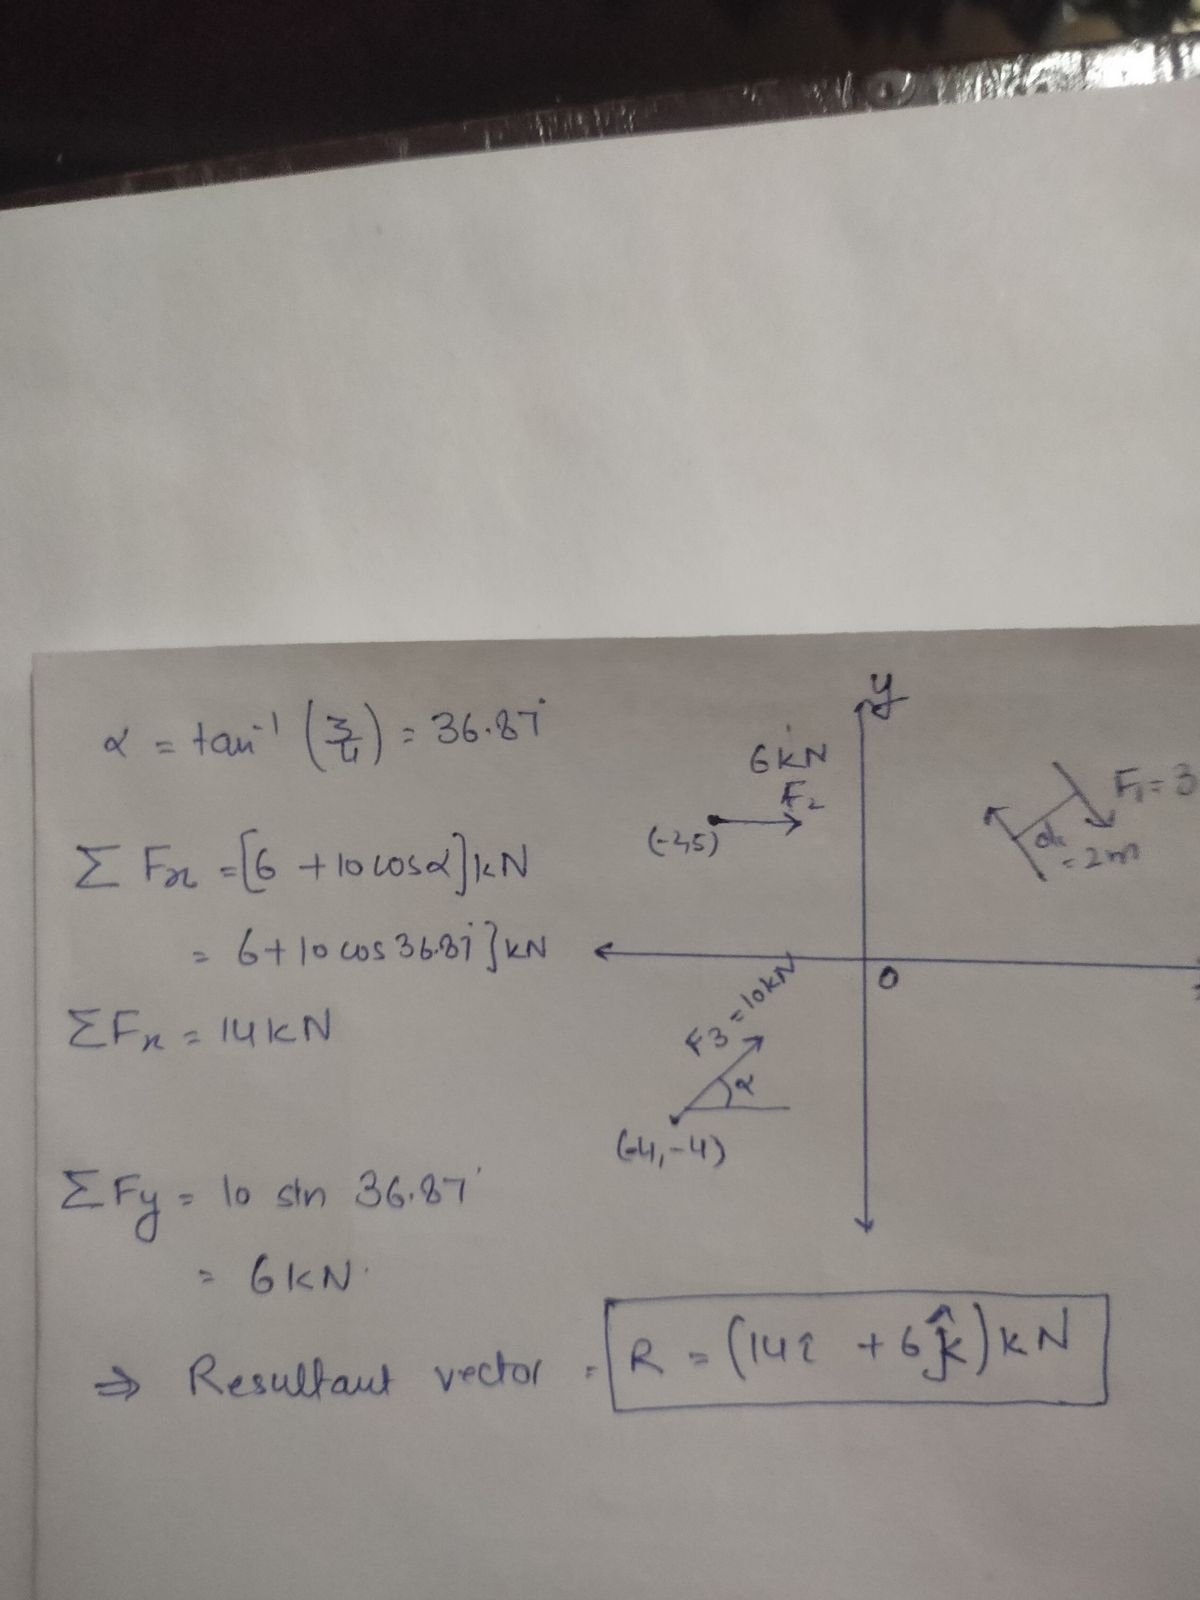 α = tan⁻¹ (3/4) = 36.87°
Σ Fx = [6 + 10 cosα] kN
= 6 + 10 cos 36.87°] kN
ΣFx = 14 kN
ΣFy = 10 sin 36.87°
= 6 kN.
⇒ Resultant vector = R = (14î + 6ĵ) kN
y
6 kN
F₂
F₁ = 3
d₁
= 2m
O
F3 = 10kN
α
(-4, -4)